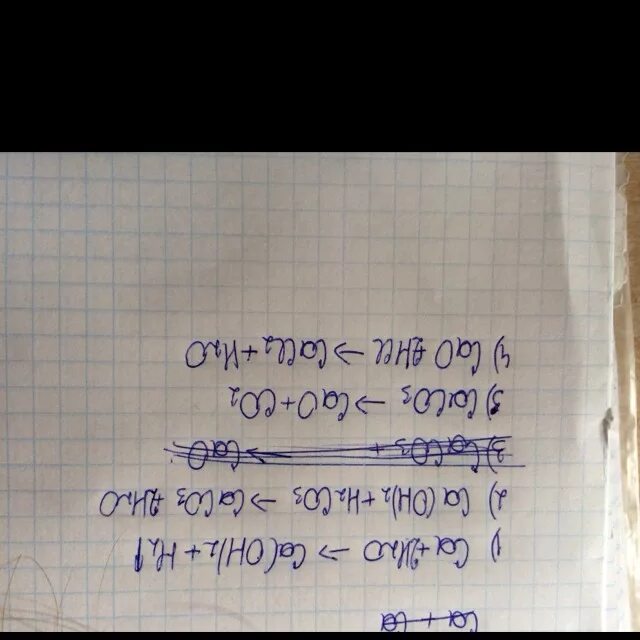 Ca + Ca
1) Ca+2H₂O → Ca(OH)₂ + H₂↑
2) Ca(OH)₂+H₂CO₃ → CaCO₃ +2H₂O
3) CaCO₃ + → CaO
3) CaCO₃ → CaO+CO₂
4) CaO+2HCl → CaCl₂+H₂O